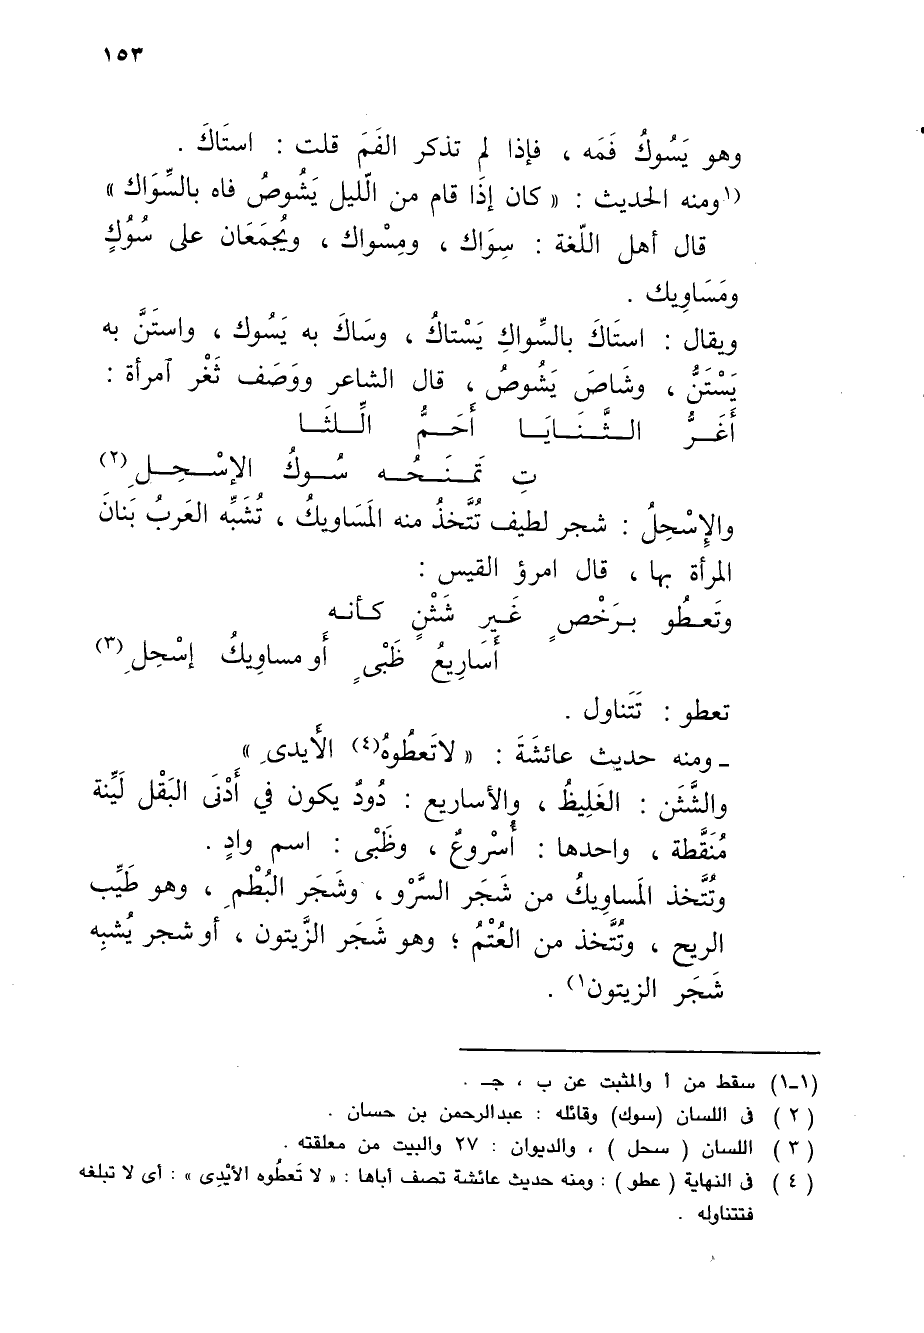 ١٥٣
وهو يَسُوكُ فَمَه ، فإذا لم تذكر الفَمَ قلت : استَاكَ .
(١ومنه الحديث : « كان إذَا قام من الّليل يَشُوصُ فاه بالسِّوَاك »
قال أهل اللّغة : سِوَاك ، ومِسْواك ، ويُجمَعَان على سُوُكٍ
ومَسَاوِيك .
ويقال : استَاكَ بالسِّواكِ يَسْتاكُ ، وسَاكَ به يَسُوك ، واستَنَّ به
يَسْتَنُّ ، وشَاصَ يَشُوصُ ، قال الشاعر ووَصَف ثَغْر آمرأة :
أَغَـــرُّ الـــثَّـــنَـــايَـــا أَحَـــمُّ الِّـــلـــثَـــا
تِ تَمـــنَـــحُـــه سُـــوكُ الإسْـــحِـــلِ (٢)
والإِسْحِلُ : شجر لطيف تُتَّخذُ منه المَسَاويكُ ، تُشَبِّه العَربُ بَنانَ
المرأة بها ، قال امرؤ القيس :
وتَعـطُو بـرَخْصٍ غَـيرِ شَثْنٍ كـأنـه
أَسَارِيعُ ظَبْىٍ أَو مساوِيكُ إسْحِلِ (٣)
تعطو : تَتَناول .
ـ ومنه حديث عائشَةَ : « لاتَعطُوهُ(٤) الأَيدى »
والشَّثَن : الغَلِيظُ ، والأساريع : دُودٌ يكون في أَدْنَى البَقْل لَيِّنة
مُنَقَّطة ، واحدها : أُسْروعٌ ، وظَبْى : اسم وادٍ .
وتُتَّخذ المَساوِيكُ من شَجَر السَّرْو ، وشَجَر البُطْمِ ، وهو طَيِّب
الريح ، وتُتَّخذ من العُتْمُ ؛ وهو شَجَر الزَّيتون ، أو شجر يُشبِه
شَجَر الزيتون١) .
(١ـ١) سقط من أ والمثبت عن ب ، جـ .
( ٢ ) فى اللسان (سوك) وقائله : عبدالرحمن بن حسان .
( ٣ ) اللسان ( سحل ) ، والديوان : ٢٧ والبيت من معلقته .
( ٤ ) فى النهاية ( عطو ) : ومنه حديث عائشة تصف أباها : « لا تَعطُوه الأيْدِى » : أى لا تبلغه
فتتناوله .